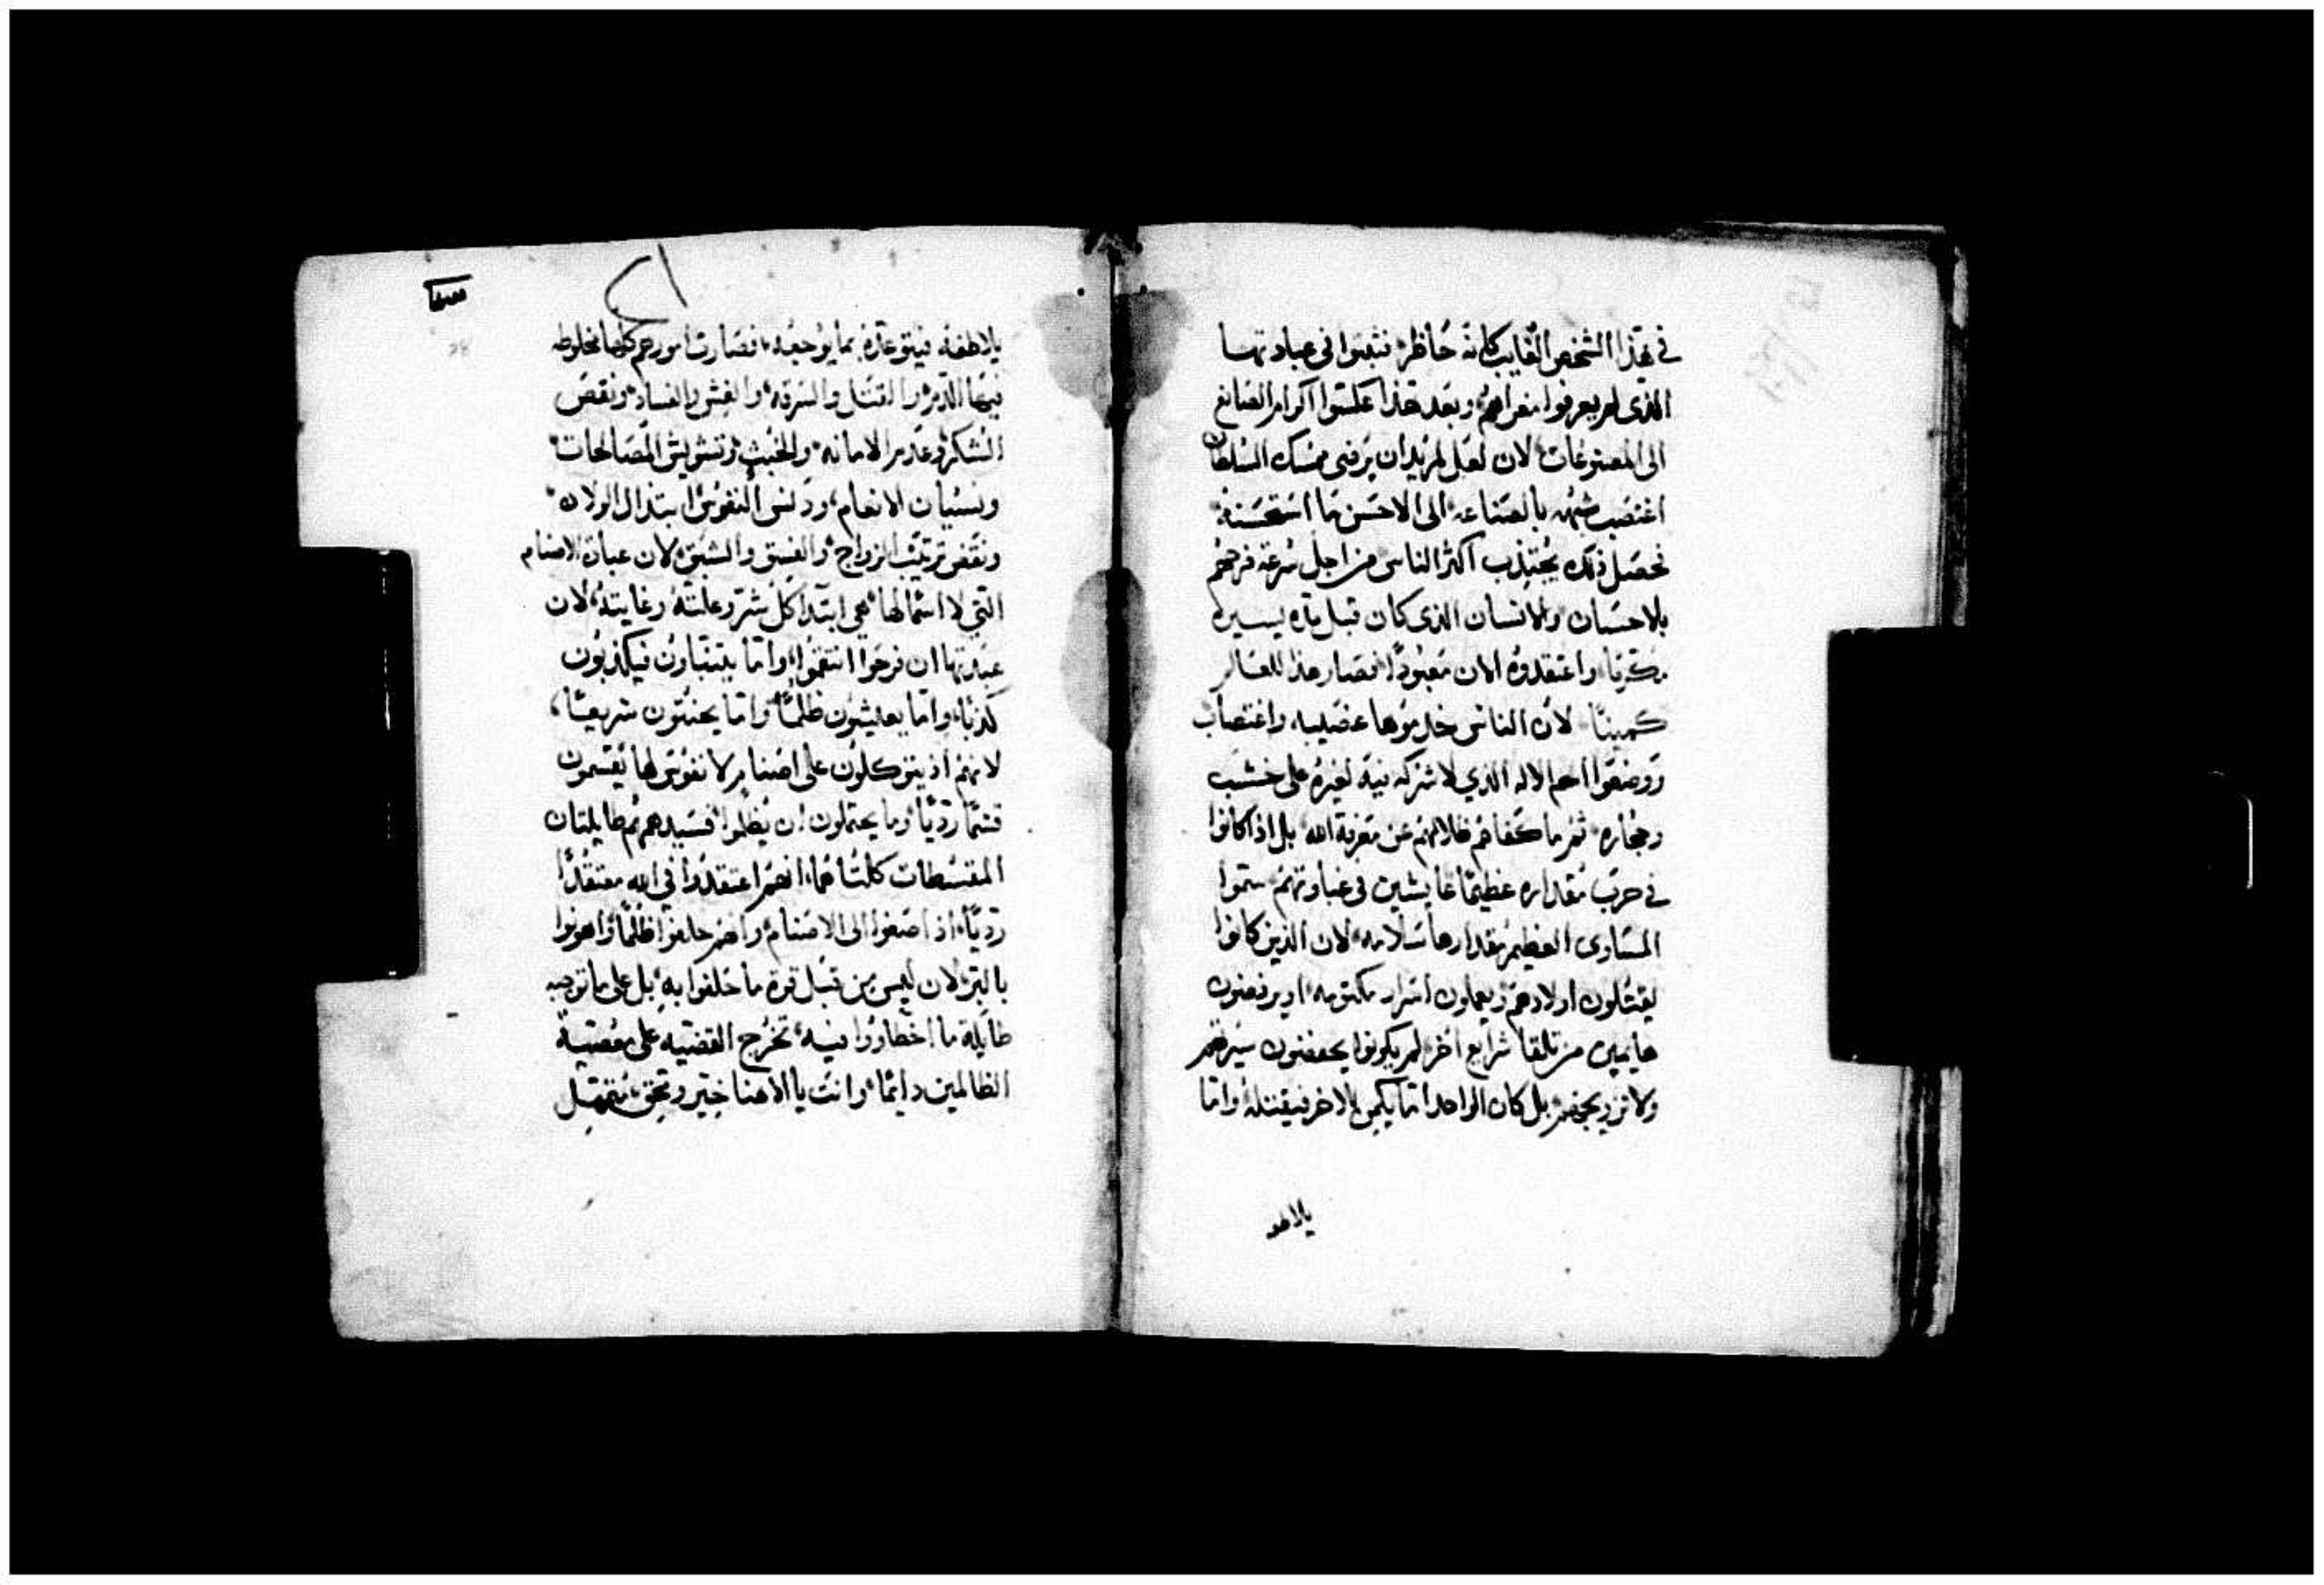 في هذا الشخص الغايب كانه حاظر، فثبتوا في عبادتها
الذي لم يعرفوا مغراهم، وبعد هذا عكسوا اكرام الصانع
الى المصنوعات، لان لعل لمريد ان يرضى ممسك السلطان
اغتصب شبهه بالصناعه، الى الاحسن ما استحسنه،
فحصل ذلك يجتذب اكثر الناس من اجل سرعة فرحهم
بلاحسان، والانسان الذي كان قبل مده يسيره
مكرماً، واعتقدوه الان معبوداً، فصار هذا للعالم
كميناً، لان الناس خدموها عصيبه، واغتصاب
ووضعوا اسم الاله الذي لا شركه فيه لغيره على خشب
وحجاره، ثم ما كفاهم ظلالهم عن معرفة الله، بل اذ كانوا
في حرب مقداره عظيماً عايشين في غباوتهم، سموا
المساوي العظيم مقدارها سلامه، لان الذين كانوا
يقتلون اولادهم، ويعملون اسرار مكتومه، او يرفضون
هايمين من تلقا شرايع اخر، لم يكونوا يحفضون سيرتهم
ولا تزويجهم، بل كان الواحد اما يكمن للاخر فيقتله، واما
يلاطفه
يلاطفه، فيتوعده بما يوجعه، فصارت امورهم كلها مخلوطه
فيها الدم، والقتل والسرقه، والغش والفساد، ونقص
الشكر، وعدم الامانه، والخبث، وتشويش المصالحات،
ونسيان الانعام، ودنس النفوس، ابتدال الولاده،
ونقض ترتيب الزواج، والفسق والشبق، لان عبادة الاصنام
التي لا اسما لها، هي ابتدا كل شر وعلته وغايته، لان
عبدتها ان فرحوا انتقموا، واما يتنباون فيكذبون
كذباً، واما يعيشون ظلماً، واما يحنثون سريعاً،
لانهم اذ يتوكلون على اصنام لا نفوس لها يقسمون
قسماً ردياً، وما يحتملون ان يظلموا، فسيدهمهم طايلتان
المقسطات كلتاهما، انهم اعتقدوا في الله معتقداً
ردياً، اذ اصغوا الى الاصنام، وانهم حلفوا ظلماً واهونوا
بالبر، لان ليس من قبل قوة ما حلفوا به، بل على ما توجبه
طايلة ما اخطاووا فيه، تخرج القضيه على معصية
الظالمين دايماً، وانت يا الاهنا خير ومحق، متمهل